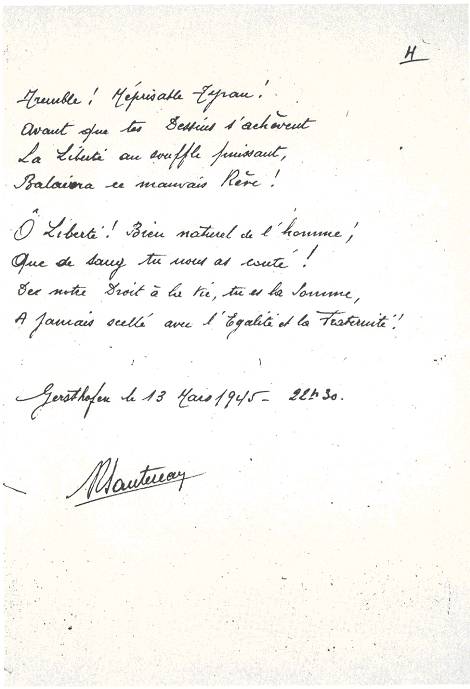 4
Tremble! Méprisable Tyran!
Avant que tes Dessins s'achèvent
La Liberté au souffle puissant,
Balaiera ce mauvais Rêve!
Ô Liberté! Bien naturel de l'homme!
Que de sang tu nous as couté!
De notre Droit à la Vie, tu es la Somme,
A jamais scellé avec l'Egalité et la Fraternité!
Gersthofen le 13 Mars 1945 - 22h30.